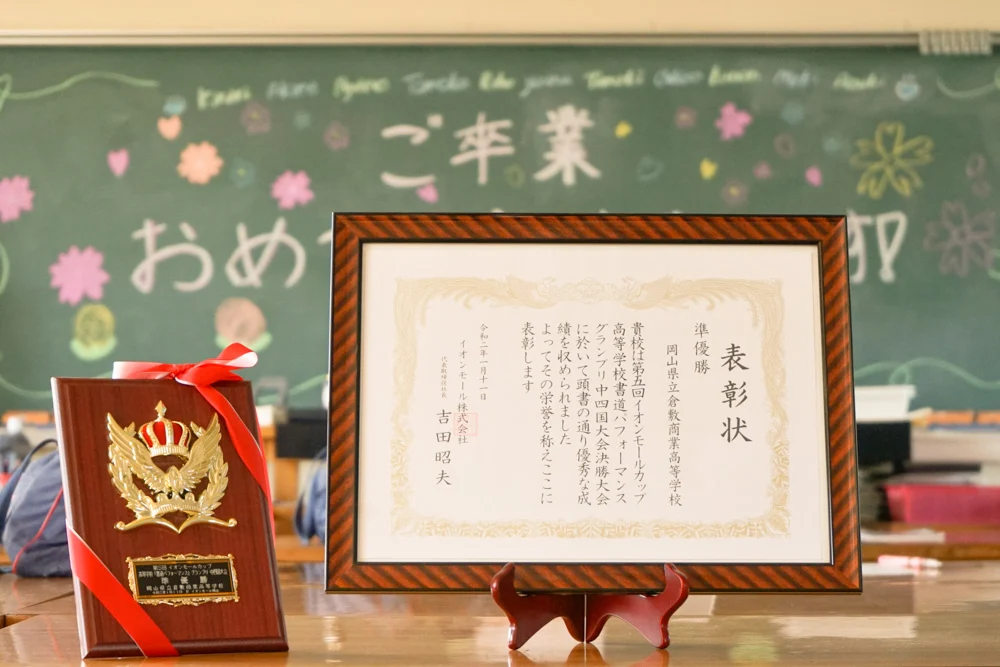 ご卒業
おめ
表彰状
準優勝
岡山県立倉敷商業高等学校
貴校は第五回イオンモールカップ
高等学校書道パフォーマンス
グランプリ中四国大会決勝大会
に於いて頭書の通り優秀な成
績を収められました
よってその栄誉を称えここに
表彰します
令和二年一月十一日
イオンモール株式会社
代表取締役社長
吉田昭夫
第5回 イオンモールカップ
準優勝
岡山県立倉敷商業高等学校